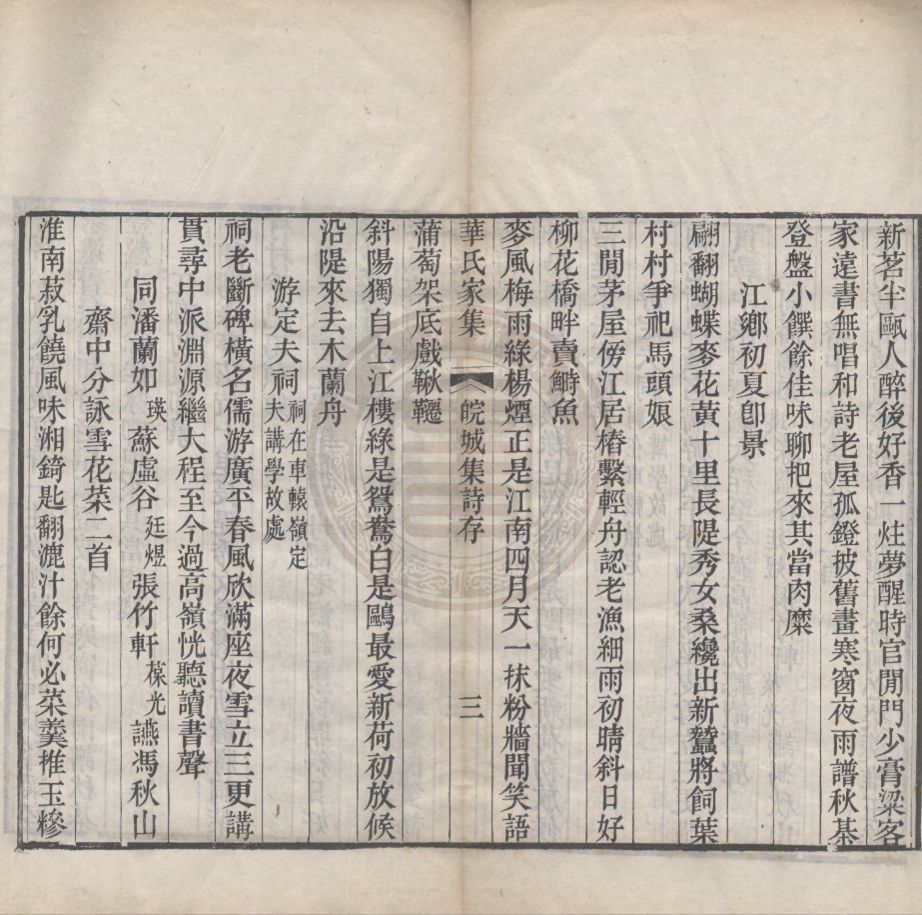 新茗半甌人醉後好香一炷夢醒時官閒門少膏粱客
家遠書無唱和詩老屋孤鐙披舊畫寒窗夜雨譜秋棊
登盤小饌餘佳味聊把來其當肉糜
江鄉初夏卽景
翩翻蝴蝶麥花黃十里長隄秀女桑纔出新蠶將飼葉
村村爭祀馬頭娘
三閒茅屋傍江居樁繫輕舟認老漁細雨初晴斜日好
柳花橋畔賣鰣魚
麥風梅雨綠楊煙正是江南四月天一抹粉牆聞笑語
華氏家集 皖城集詩存 三
蒲萄架底戲鞦韆
斜陽獨自上江樓綠是鴛鴦白是鷗最愛新荷初放候
沿隄來去木蘭舟
游定夫祠祠在車轅嶺定夫講學故處
祠老斷碑橫名儒游廣平春風欣滿座夜雪立三更講
貫尋中派淵源繼大程至今過高嶺恍聽讀書聲
同潘蘭如瑛蘇虛谷廷煜張竹軒葆光讌馮秋山
齋中分詠雪花菜二首
淮南菽乳饒風味湘錡匙翻漉汁餘何必菜羹推玉糝